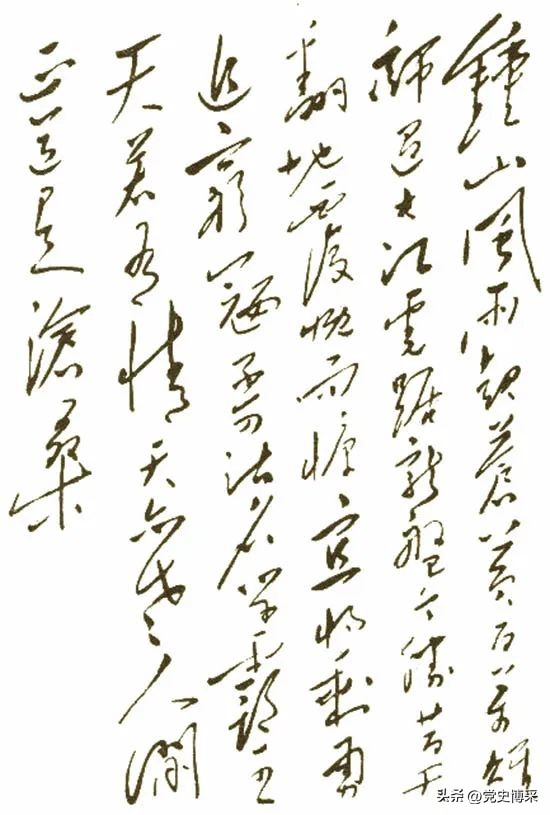 鍾山風雨起蒼黄百万雄
師過大江虎踞龍盤今勝昔天
翻地覆慨而慷宜將剩勇
追窮寇不可沽名學霸王
天若有情天亦老人間
正道是滄桑
头条 @党史博采